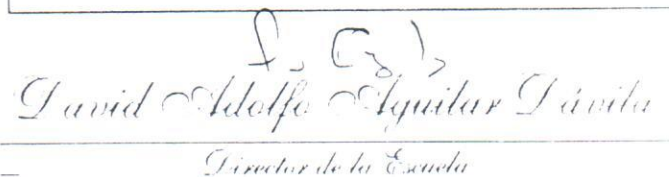 David Adolfo Aguilar Dávila
Director de la Escuela